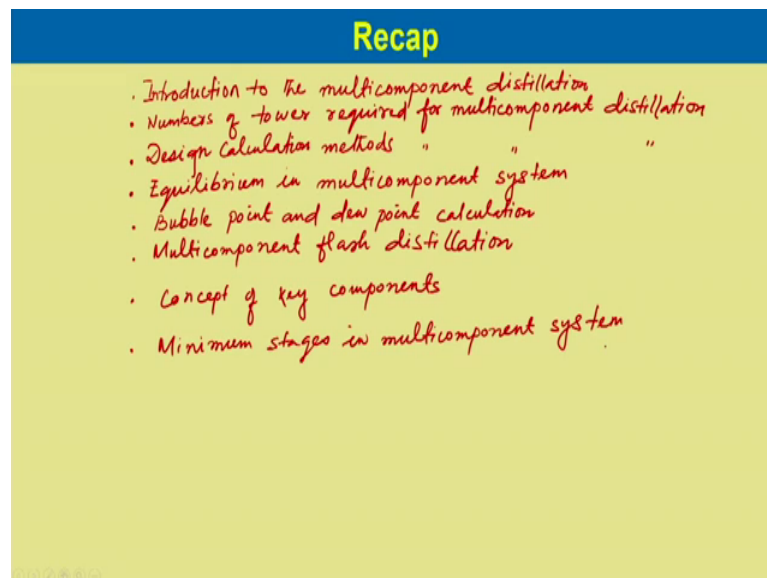 Recap
. Introduction to the multicomponent distillation
. Numbers of tower required for multicomponent distillation
. Design Calculation methods " " "
. Equilibrium in multicomponent system
. Bubble point and dew point calculation
. Multicomponent flash distillation
. Concept of key components
. Minimum stages in multicomponent system